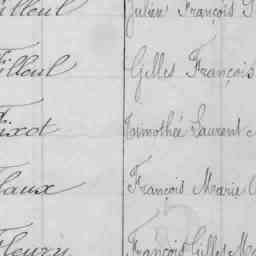 Filloul Julien François
Filloul Gilles François
Fixot Thimothée Laurent
Flaux François Marie
Fleury François Gilles Ma